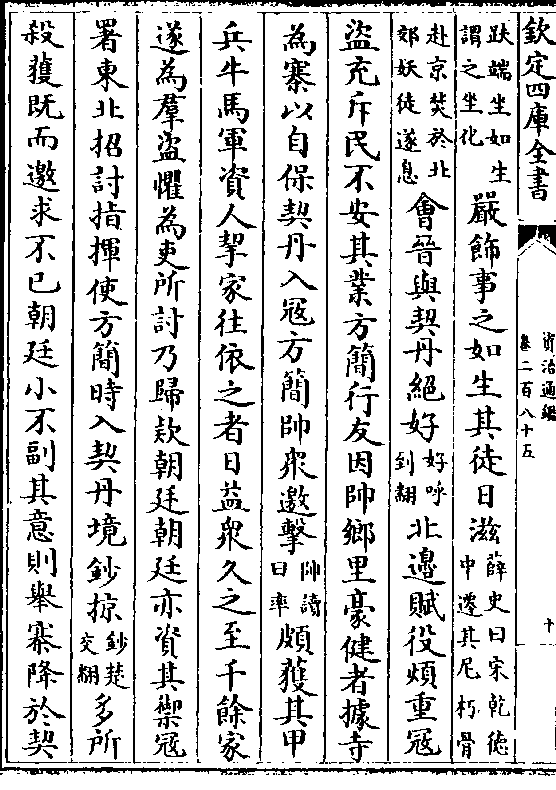 欽定四庫全書
資治通鑑
卷二百八十五
十
趺端坐如生謂之坐化嚴飾事之如生其徒日滋薛史曰宋乾德中遷其尼朽骨
赴京焚於北郊妖徒遂息會晉與契丹絕好好呼到翻北邊賦役煩重冦
盜充斥民不安其業方簡行友因帥鄉里豪健者據寺
為寨以自保契丹入冦方簡帥衆邀擊帥讀曰率頗獲其甲
兵牛馬軍資人挈家往依之者日益衆久之至千餘家
遂為羣盜懼為吏所討乃歸欵朝廷朝廷亦資其禦冦
署東北招討指揮使方簡時入契丹境鈔掠鈔楚交翻多所
殺獲既而邀求不已朝廷小不副其意則舉寨降於契